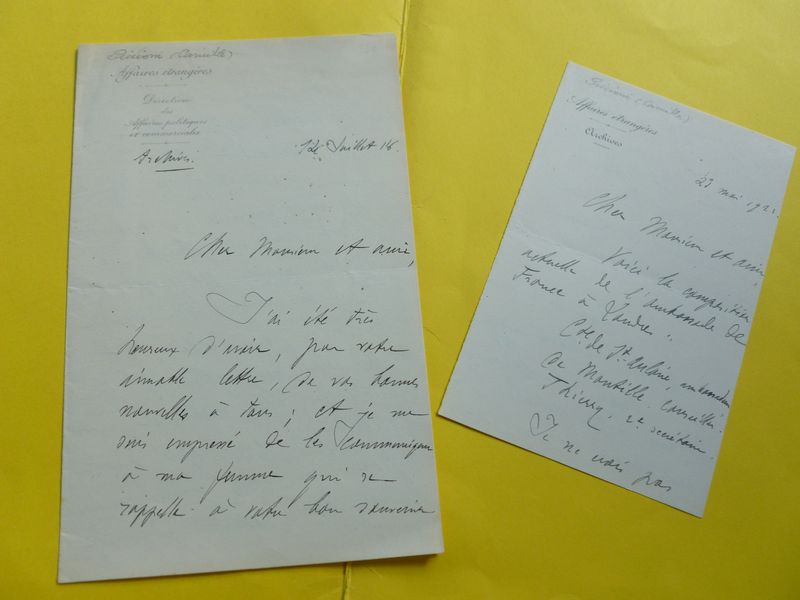 Affaires étrangères
Direction
des
Affaires politiques
et commerciales
Archives.
12 Juillet 18.
Cher Monsieur et ami,
J'ai été très
heureux d'avoir, par votre
aimable lettre, de vos bonnes
nouvelles à tous ; et je me
suis empressé de les communiquer
à ma femme qui se
rappelle à votre bon souvenir
Affaires étrangères
Archives
23 mai 1921.
Cher Monsieur et ami,
Voici la composition
actuelle de l'ambassade de
France à Londres.
Cte de St Aulaire, ambassadeur
de Montille, conseiller.
Thierry, 2e secrétaire.
Je ne vois pas